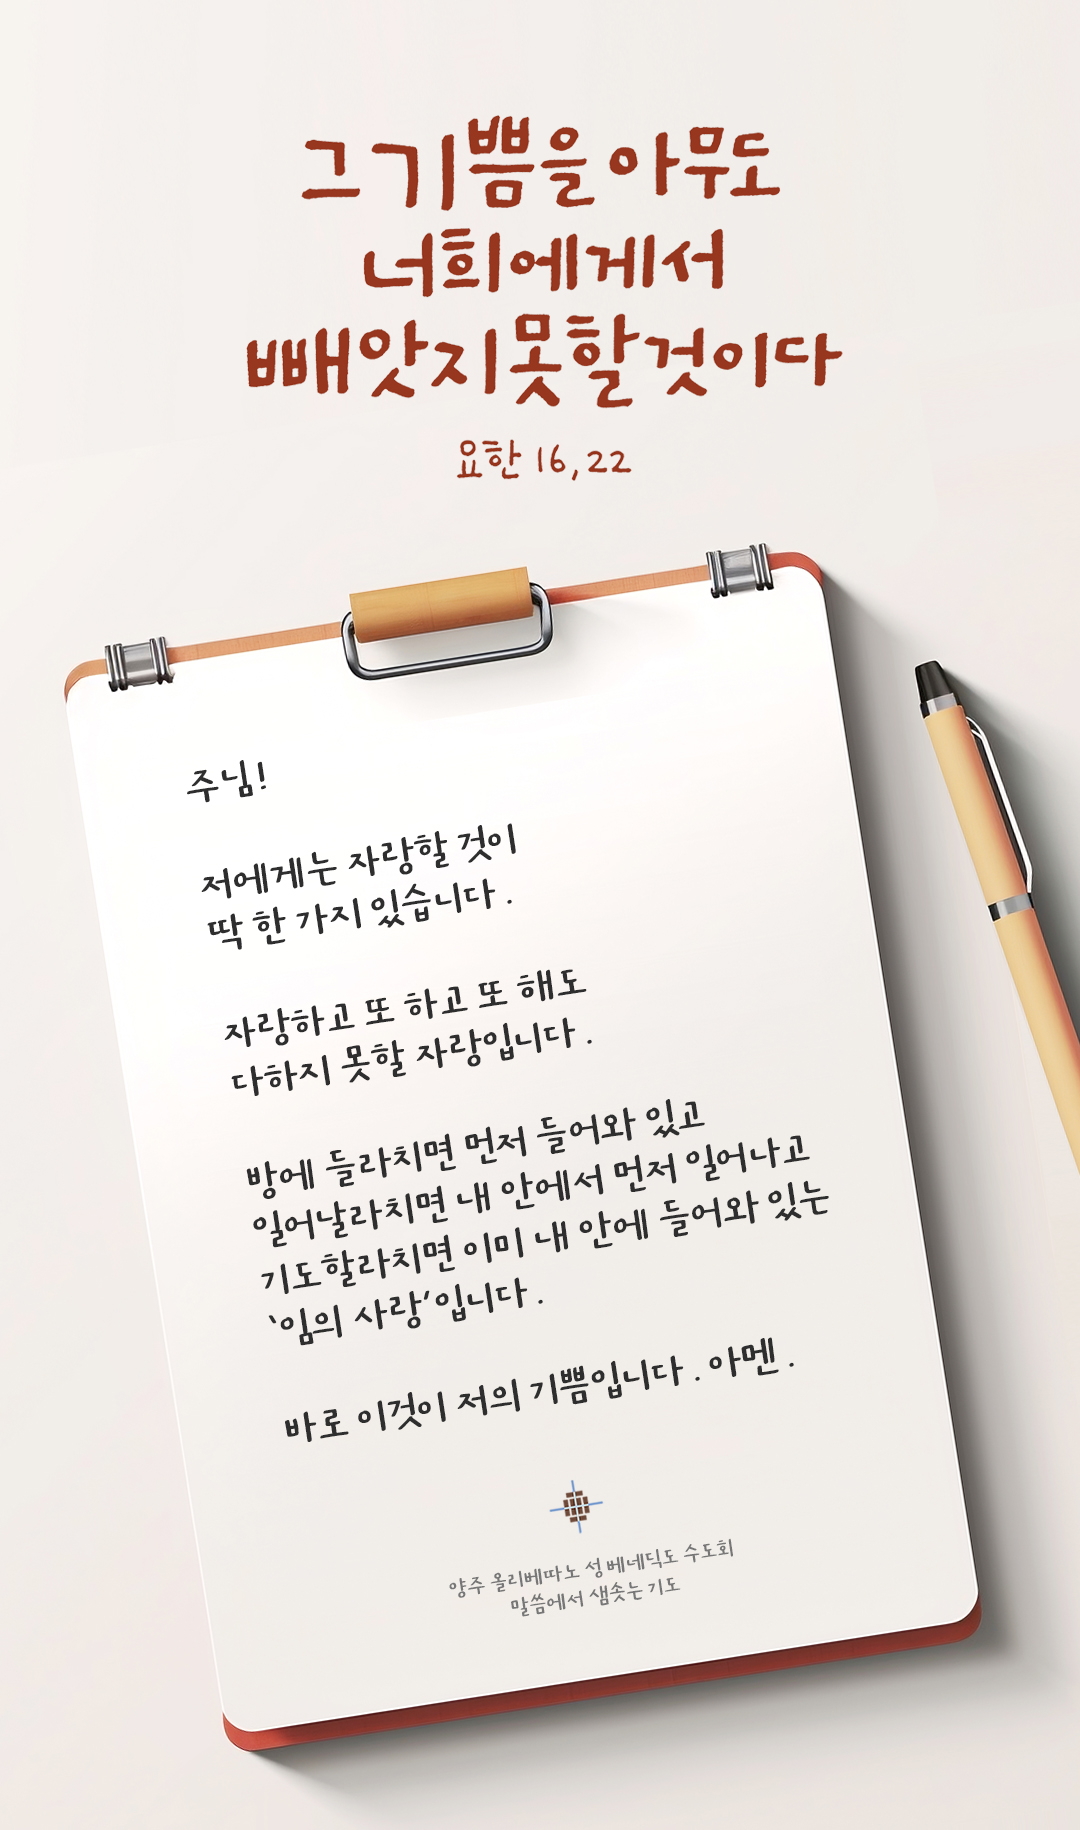 그 기쁨을 아무도
너희에게서
빼앗지 못할 것이다
요한 16,22
주님!
저에게는 자랑할 것이
딱 한 가지 있습니다.
자랑하고 또 하고 또 해도
다하지 못할 자랑입니다.
방에 들라치면 먼저 들어와 있고
일어날라치면 내 안에서 먼저 일어나고
기도할라치면 이미 내 안에 들어와 있는
‘임의 사랑’입니다.
바로 이것이 저의 기쁨입니다. 아멘.
양주 올리베따노 성 베네딕도 수도회
말씀에서 샘솟는 기도